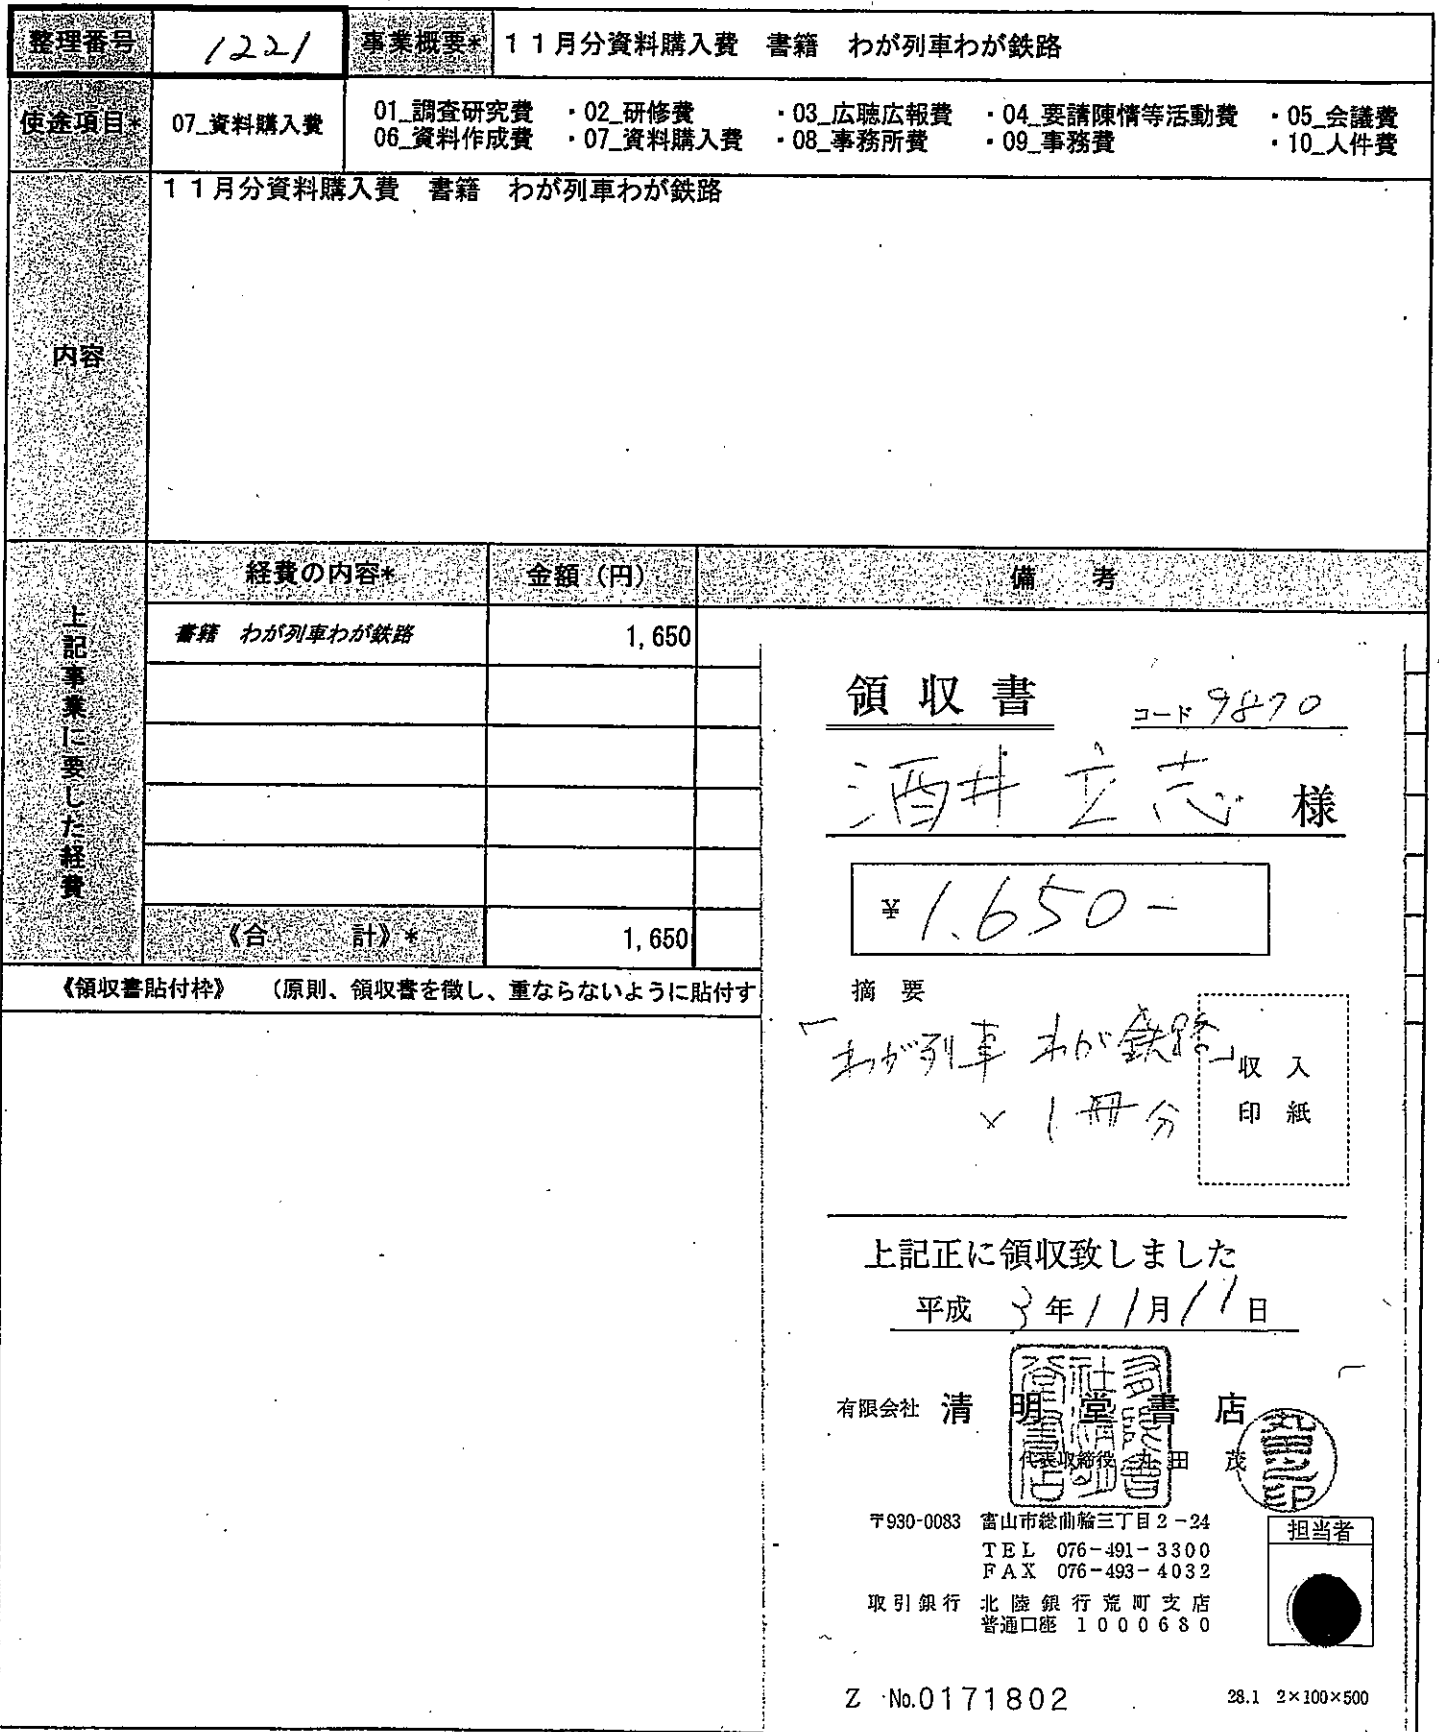 整理番号 1221 事業概要* 11月分資料購入費 書籍 わが列車わが鉄路
使途項目* 07_資料購入費 01_調査研究費 ・02_研修費 ・03_広聴広報費 ・04_要請陳情等活動費 ・05_会議費
06_資料作成費 ・07_資料購入費 ・08_事務所費 ・09_事務費 ・10_人件費
内容
11月分資料購入費 書籍 わが列車わが鉄路
上記事業に要した経費
経費の内容* 金額(円) 備考
書籍 わが列車わが鉄路 1,650
《合 計》* 1,650
《領収書貼付枠》 (原則、領収書を徴し、重ならないように貼付す
領収書
コード 9870
酒井 立志 様
¥1.650-
摘要
「わが列車 わが鉄路」
×1冊分
収入
印紙
上記正に領収致しました
平成 3年11月11日
有限会社 清明堂書店
代表取締役 丸田 茂
〒930-0083 富山市総曲輪三丁目2-24
TEL 076-491-3300
FAX 076-493-4032
取引銀行 北陸銀行荒町支店
普通口座 1000680
担当者
Z No.0171802
28.1 2×100×500